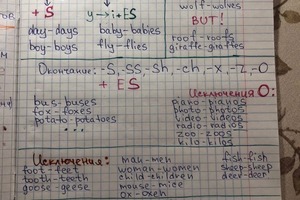 + S
y → i + ES
wolf - wolves
day - days
baby - babies
BUT!
boy - boys
fly - flies
roof - roofs
giraffe - giraffes
Окончание: -S, -SS, -Sh, -ch, -X, -Z, -O
+ ES
Исключения O:
bus - buses
fox - foxes
potato - potatoes
...
piano - pianos
photo - photos
video - videos
radio - radios
zoo - zoos
kilo - kilos
Исключения:
foot - feet
tooth - teeth
goose - geese
man - men
woman - women
child - children
mouse - mice
ox - oxen
fish - fish
sheep - sheep
deer - deer